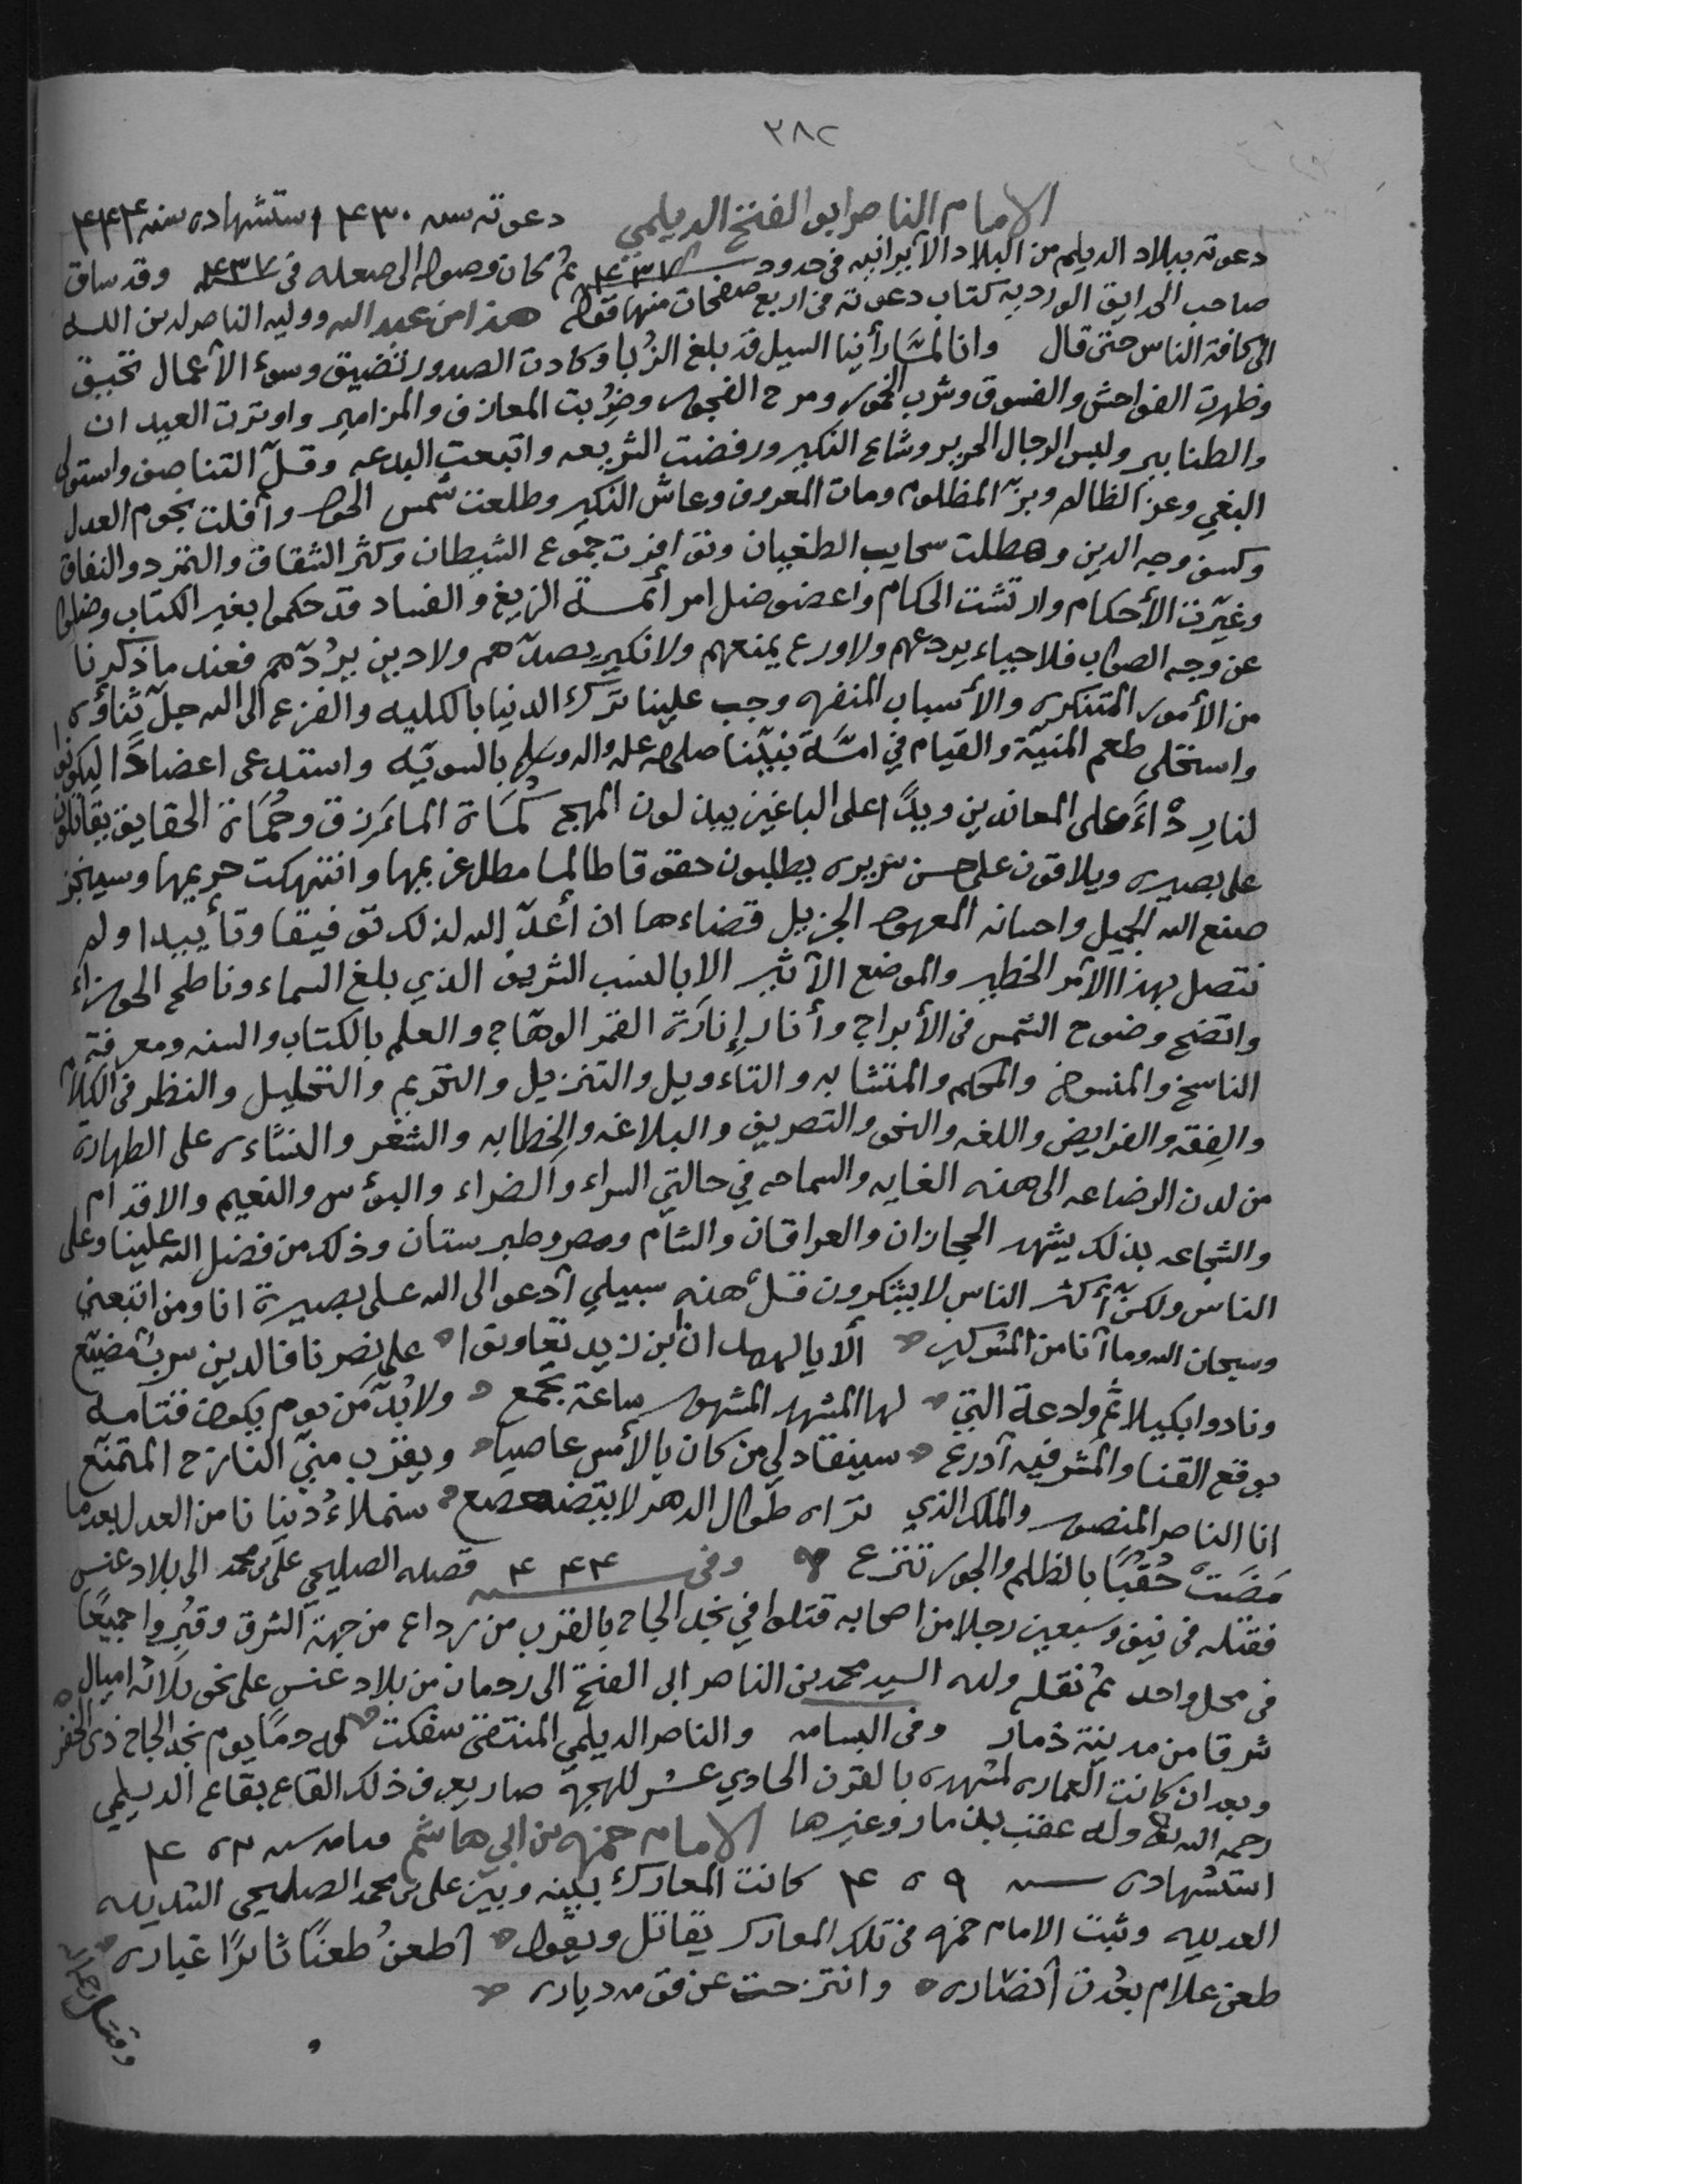 ٣٨٢
الامام الناصر ابو الفتح الديلمي دعوته سنه ٤٣٠ استشهاده سنه ٤٤٤
دعوته ببلاد الديلم من البلاد الآيرانيه في حدود ٤٣٧ ثم كان وصوله الى صعده في ٤٣٧ وقد ساق
صاحب الحدايق الورديه كتاب دعوته في اربع صفحات منها قوله هذا من عبد الله ووليه الناصر لدين الله
الى كافة الناس حتى قال وانا لمّا رأينا السيل قد بلغ الزُبا وكادت الصدور تضيق وسوء الآعمال تحيق
وظهرت الفواحش والفسوق وشرب الخمور ومرح الفجور وضُربت المعازف والمزامير واوترت العيدان
والطنابير ولبس الرجال الحرير وشاع النكير ورفضت الشريعه واتبعت البدعه وقلّ التناصف واستولى
البغي وعز الظالم وبزّ المظلوم ومات المعروف وعاش النكير وطلعت شمس الجور وأفلت نجوم العدل
وكسف وجه الدين وهطلت سحايب الطغيان وتوافرت جموع الشيطان وكثر الشقاق والتمرد والنفاق
وغيّرت الأحكام وارتشت الحكام واعضوضل امر أئمة الزيغ والفساد قد حكموا بغير الكتاب وضلوا
عن وجه الصواب فلا حياء يردعهم ولا ورع يمنعهم ولا نكير يصدّهم ولا دين يردّهم فعند ما ذكرنا
من الأمور المتنكره والأسباب المنفره وجب علينا ترك الدنيا بالكليه والفزع الى الله جلّ ثناؤه
واستحلى طعم المنيّة والقيام في امّة نبيّنا صلى الله عليه واله وسلم بالسويّه واستدعى اعضادًا ليكونوا
لنا ردْاءً على المعاندين ويدًا على الباغين يبذلون المهج كُماة المأزق وحُمَاة الحقايق يقاتلون
على بصيره ويلاقون على حسن سريره يطلبون حقوقا طالما مطل غريمها وانتهكت حريمها وسينجز
صنع الله الجميل واحسانه المعهود الجزيل قضاءها ان أعدّ الله لذلك توفيقا وتأييدا ولم
نتصل بهذا الآمر الخطير والموضع الآثير الا بالنسب الشريف الذي بلغ السماء وناطح الجوزاء
واتضح وضوح الشمس في الأبراج وأنار إنارة القمر الوهّاج والعلم بالكتاب والسنه ومعرفة
الناسخ والمنسوخ والمحكم والمتشابه والتاءويل والتنزيل والتحريم والتحليل والنظر في الكلام
والفِقه والفرايض واللغه والنحو والتصريف والبلاغه والخطابه والشعر والنشاءه على الطهارة
من لدن الرضاعه الى هذه الغايه والسماحه في حالتي السراء والضراء والبؤس والنعيم والاقدام
والشجاعه بذلك يشهد الحجازان والعراقان والشام ومصر وطبرستان وذلك من فضل الله علينا وعلى
الناس ولكنّ أكثر الناس لا يشكرون قل هذه سبيلي آدعو الى الله على بصيرة انا ومن اتبعني
وسبحان الله وما آنا من المشركين ألا يا لهمدان بن زيد تعاونوا على نصرنا فالدين سرب مضيّع
ونادوا بكيلا ثم ولادعة التي لها المشهد المشهور ساعة تجمع ولا بُدّ من يوم يكون قتامه
بوقع القنا والمشرفيه آدرع سينقاد لي من كان بالأمس عاصيا ويقرب منّي النازح المتمنّع
انا الناصر المنصور والملك الذي تراه طوال الدهر لا يتضعضع سنملاءُ دنيانا من العدل بعدما
مَضَتْ حُقُبًا بالظلم والجور تنزع وفي سنه ٤٤٤ قصده الصليحي علي بن محمد الى بلاد عنس
فقتله في نيف وسبعين رجلا من اصحابه قتلوا في نجد الجاح بالقرب من رداع من جهة الشرق وقبُروا جميعًا
في محل واحد ثم نقله ولده السيد محمد بن الناصر ابى الفتح الى ردمان من بلاد عنس على نحو ثلاثه اميال
شرقا من مدينة ذمار وفي البسامه والناصر الديلمي المنتضى سفكت له دمًا يوم نجد الجاح ذى الحفر
وبعد ان كانت العماره لمشهده بالقرن الحادي عشر للهجره صار يعرف ذلك القاع بقاع الديلمي
رحمه الله وله عقب بذمار وغيرها الامام حمزه بن ابي هاشم قيامه سنه ٤٥٢
استشهاده سنه ٤٥٩ كانت المعارك بينه وبين علي بن محمد الصليحي الشديده
العديده وثبت الامام حمزه في تلك المعارك يقاتل ويقول اطعنُ طعنًا ثائرًا غباره
طعن غلام بعُدت آنصاره وانتزحت عن قومه دياره